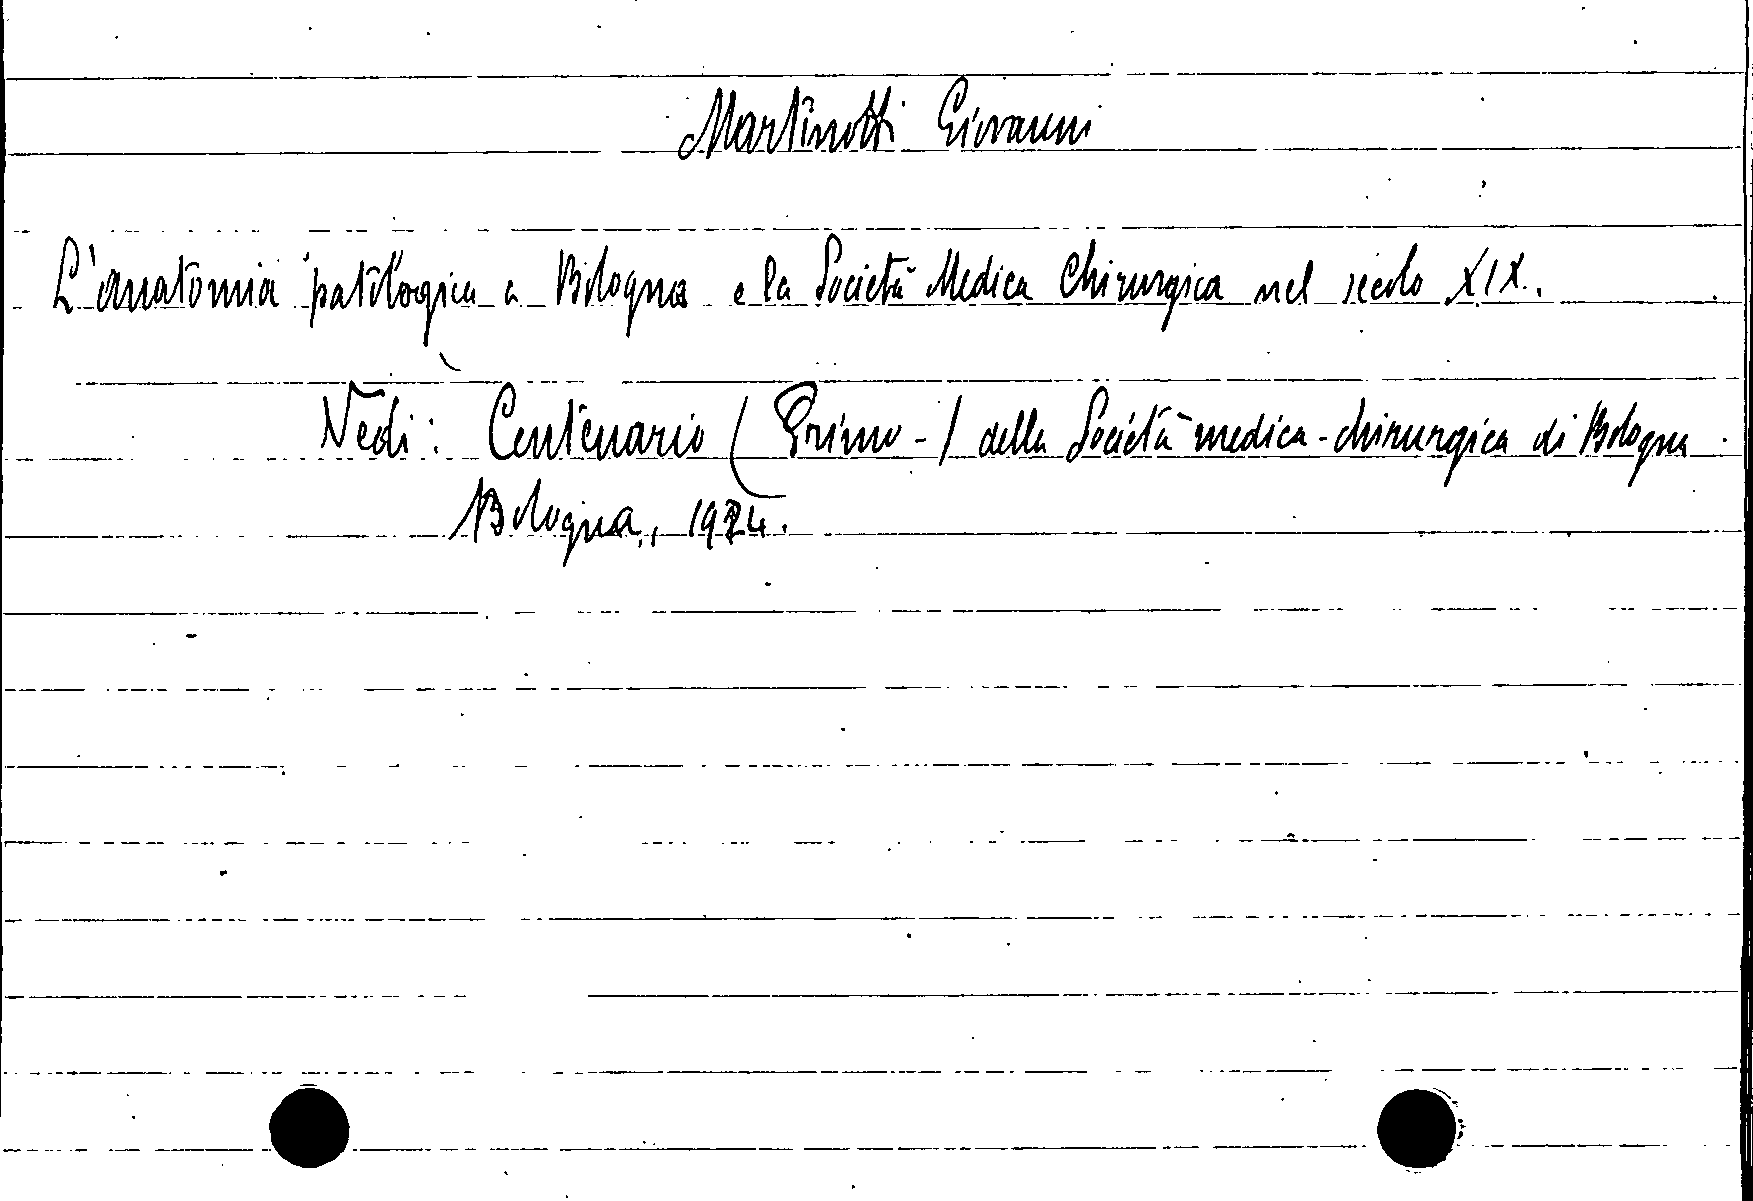 Martinotti Giovanni
L'anatomia patologica a Bologna e la Società Medica Chirurgica nel secolo XIX.
Vedi: Centenario (Primo-) della Società medica-chirurgica di Bologna.
Bologna, 1924.